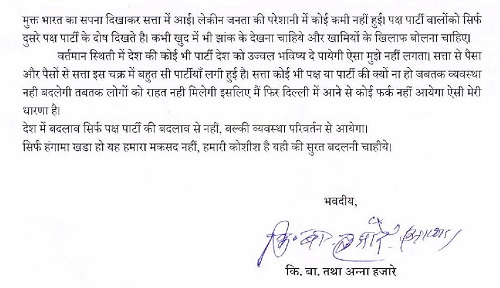 मुक्त भारत का सपना दिखाकर सत्ता में आई। लेकीन जनता की परेशानी में कोई कमी नहीं हुई। पक्ष पार्टी वालोंको सिर्फ
दुसरे पक्ष पार्टी के दोष दिखते है। कभी खुद में भी झांक के देखना चाहिये और खानियों के खिलाफ बोलना चाहिए।
वर्तमान स्थिती में देश की कोई भी पार्टी देश को उज्वल भविष्य दे पायेगी ऐसा मुझे नही लगता। सत्ता से पैसा
और पैसों से सत्ता इस चक्र में बहुत सी पार्टीयाँ लगी हुई है। सत्ता कोई भी पक्ष या पार्टी की क्यों ना हो जबतक व्यवस्था
नही बदलेगी तबतक लोगों को राहत नही मिलेगी इसलिए मैं फिर दिल्ली में आने से कोई फर्क नहीं आयेगा ऐसी मेरी
धारणा है।
देश में बदलाव सिर्फ पक्ष पार्टी की बदलाव से नहीं, बल्की व्यवस्था परिवर्तन से आयेगा।
सिर्फ हंगामा खडा हो यह हमारा मकसद नहीं, हमारी कोशीश है यही की सुरत बदलनी चाहीये।
भवदीय,
कि. बा. हजारे
कि. बा. तथा अन्ना हजारे